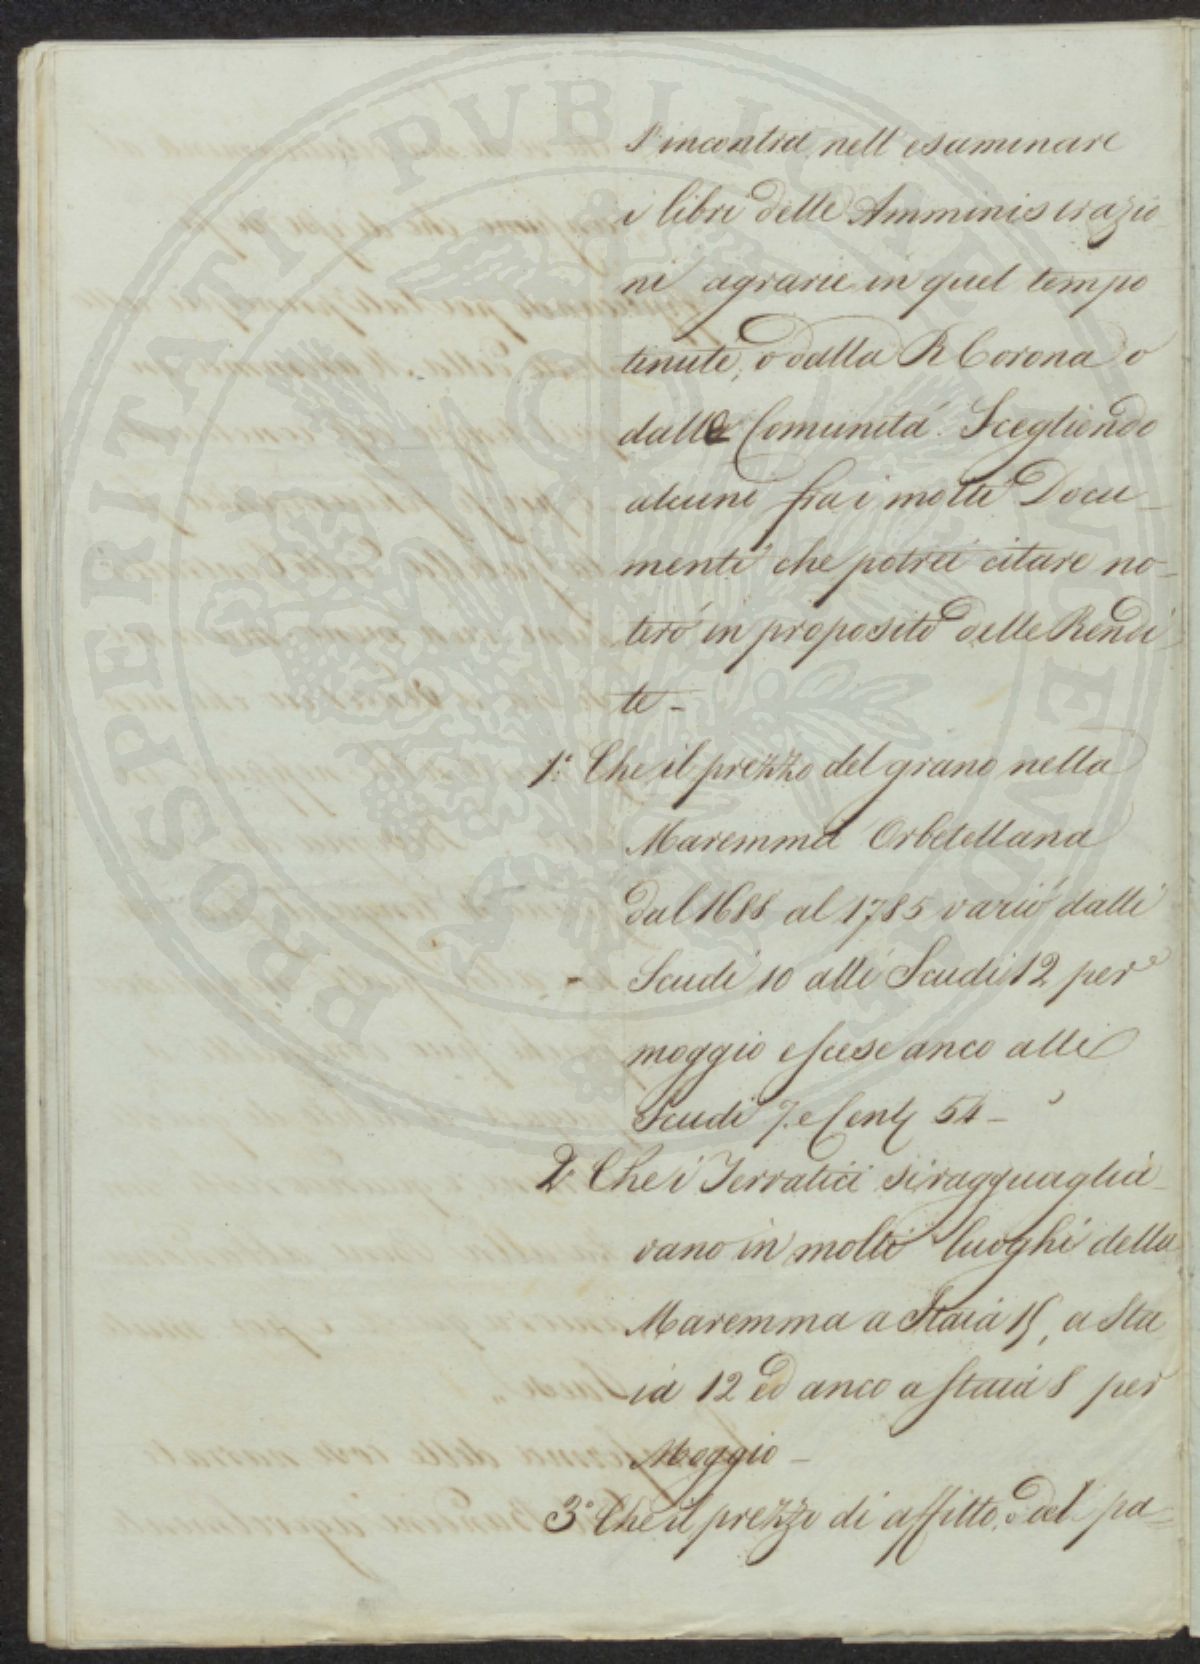 s'incontra nell'esaminare
i libri delle Amministrazio
ni agrarie in quel tempo
tenute, o dalla R Corona o
dalle Comunitá. Scegliendo
alcuni fra i molti Docu-
menti che potrei citare no-
teró in proposito delle Rendi
te-
1.° Che il prezzo del grano nella
Maremma Orbetellana
dal 1688 al 1785 varió dalli
Scudi 10 alli Scudi 12 per
moggio e scese anco alli
Scudi 7. e Cent 54-
2° Che i Terratici si ragguaglia-
vano in molti luoghi della
Maremma a Staia 15, a Sta
ia 12 ed anco a staia 8 per
Moggio-
3° Che il prezzo di affitto, o del pa-
PROSPERITATI PUBLICAE AUGENDAE